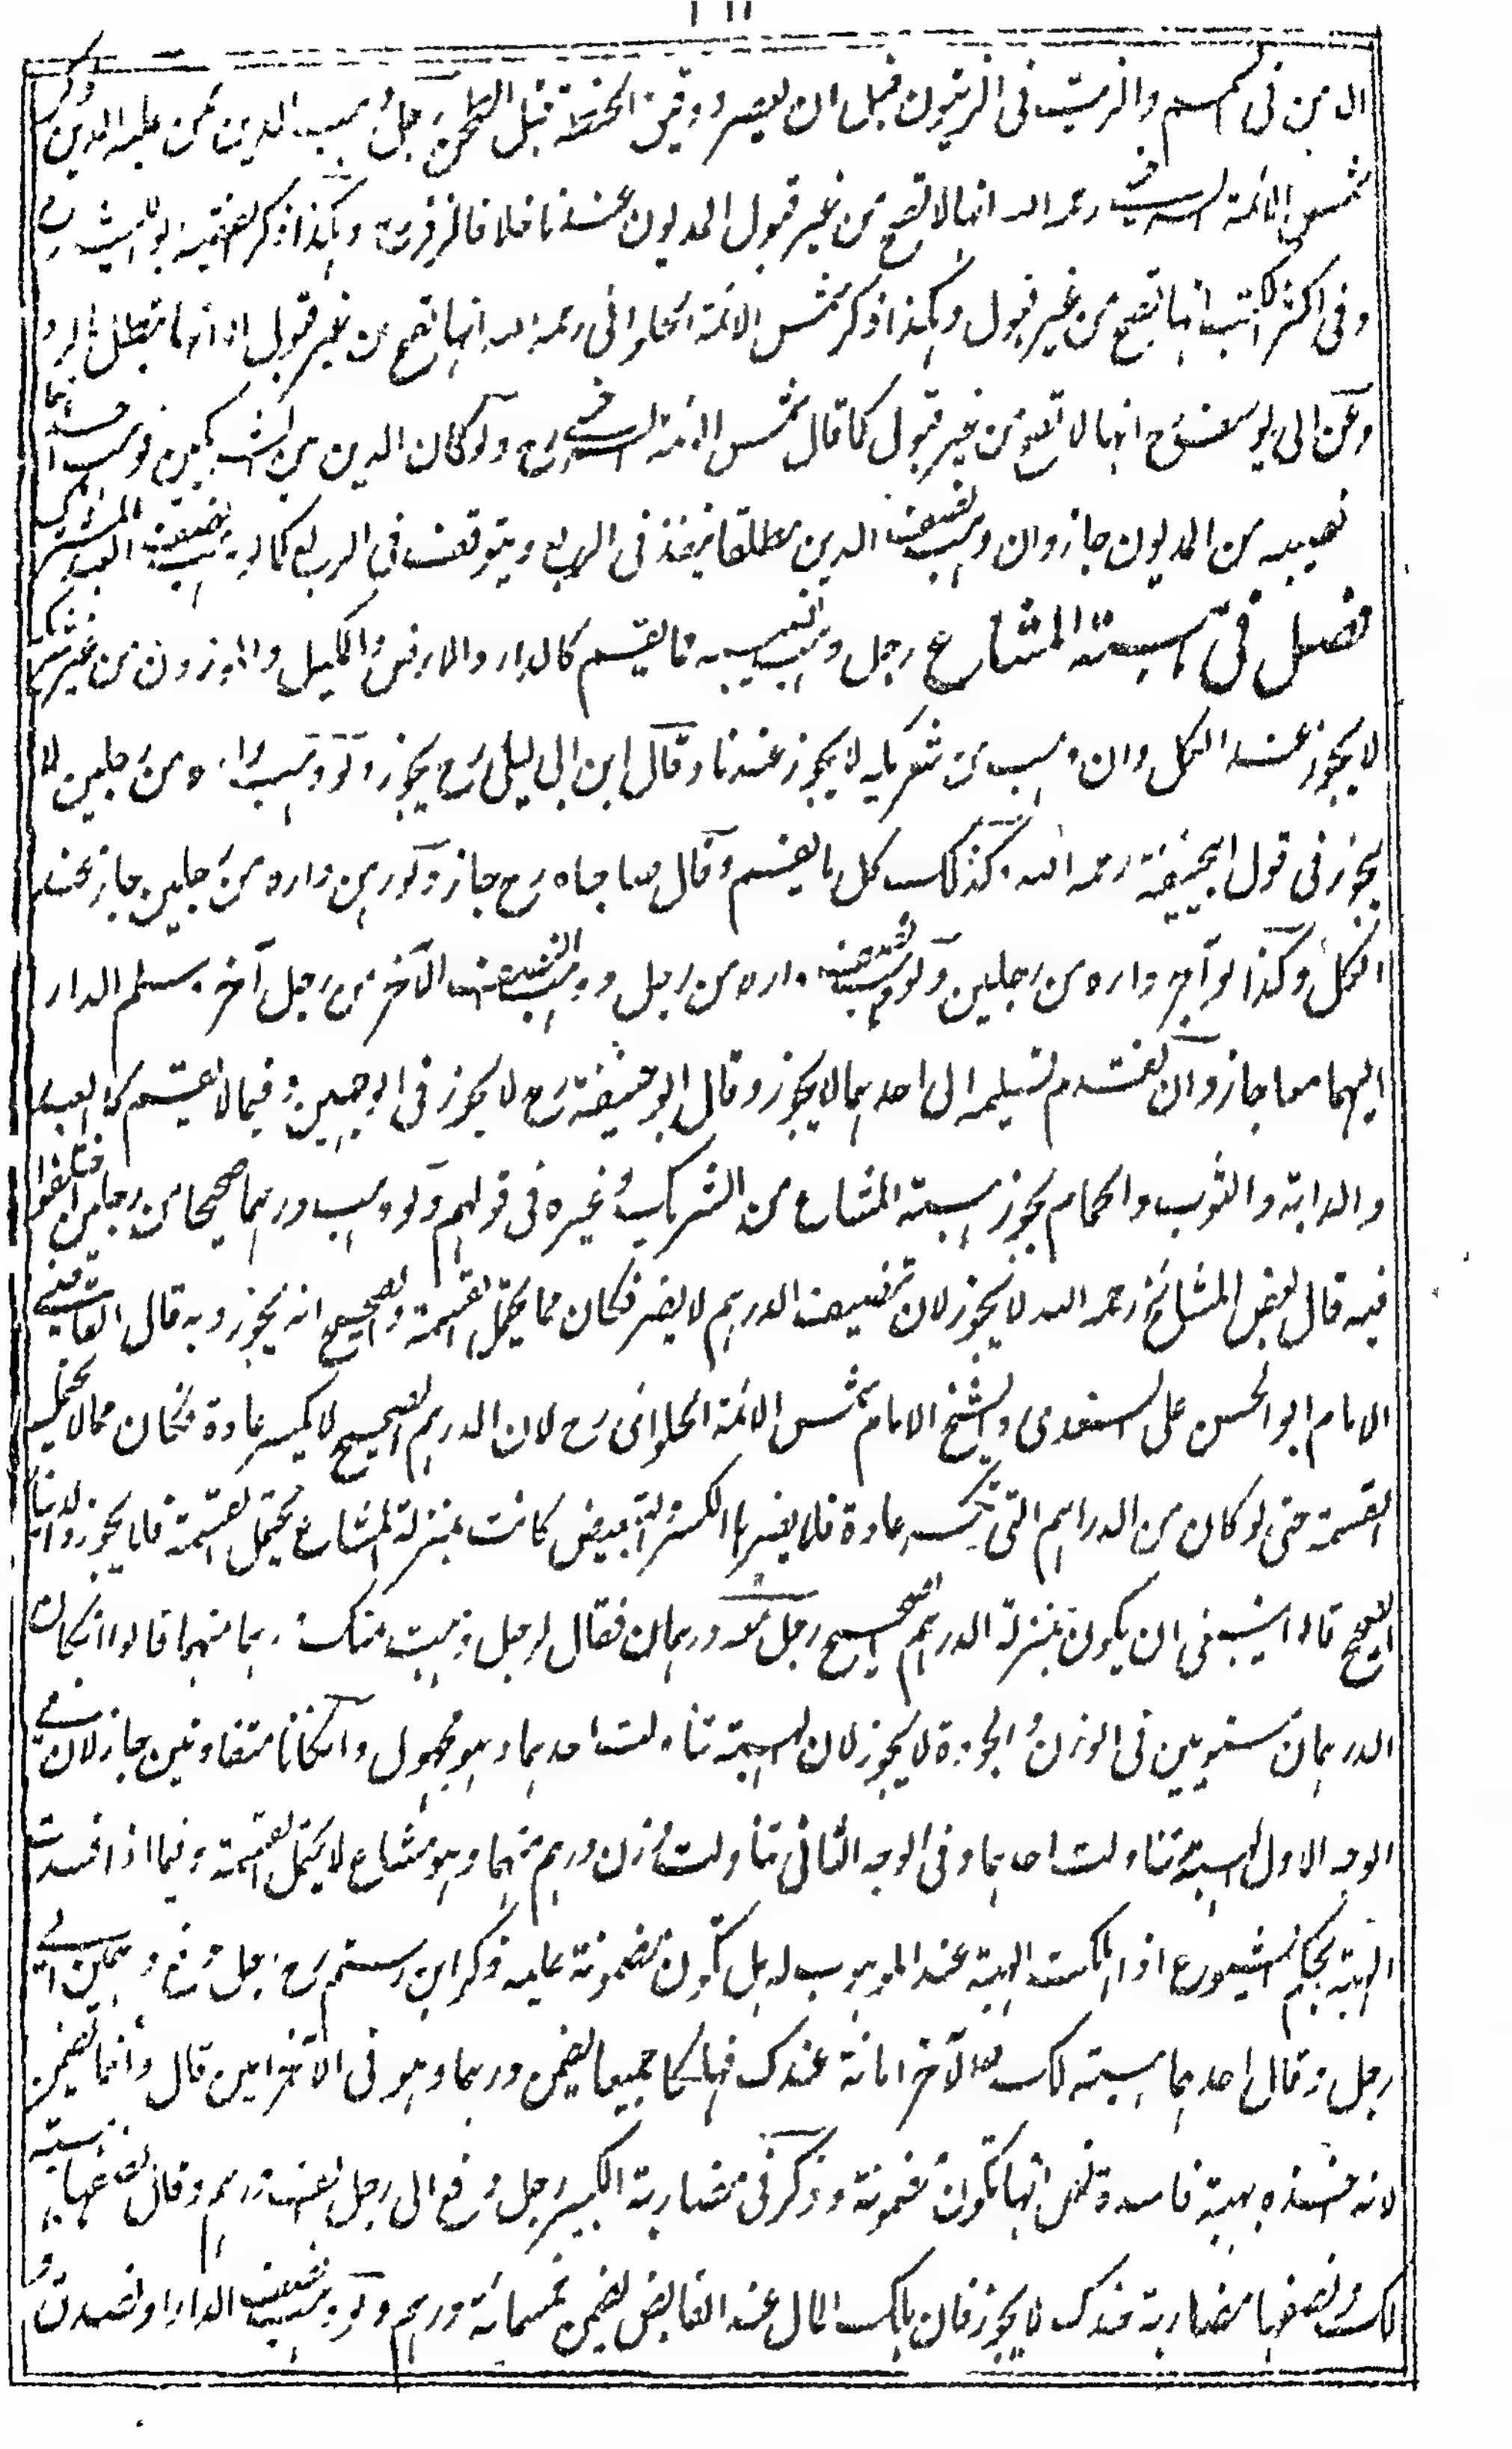 الدهن فى السمسم والزيت فى الزيتون قبل ان يعصر ودقيق الحنطة قبل الطحن رجل وهب الدين ممن عليه الدين ذكر
شمس الائمة السرخسى رحمه الله انها لا تصح من غير قبول المديون عندنا خلافا لزفر رح وهكذا ذكر الفقيه ابو الليث رح
وفى اكثر الكتب انها تصح من غير قبول وهكذا ذكر شمس الائمة الحلوانى رحمه الله انها تصح من غير قبول الا انها تبطل بالرد
وعن ابى يوسف رح انها لا تصح من غير قبول كما قال شمس الائمة السرخسى رح ولو كان الدين بين الشريكين فوهب احدهما
نصيبه من المديون جاز وان وهب نصف الدين مطلقا ينفذ فى الربع ويتوقف فى الربع كما لو وهب نصف العبد المشترك
فصل فى هبة المشاع رجل وهب نصيبه مما يقسم كالدار والارض والمكيل والموزون من غير شريكه
لا يجوز عند الكل وان وهب من شريكه لا يجوز عندنا وقال ابن ابى ليلى رح يجوز ولو وهب داره من رجلين لا
يجوز فى قول ابيحنيفة رحمه الله وكذلك كل ما يقسم وقال صاحباه رح جاز ولو رهن داره من رجلين جاز عند
الكل وكذا لو آجر داره من رجلين ولو وهب نصف داره من رجل ووهب النصف الآخر من رجل آخر وسلم الدار
اليهما معا جاز وان تقدم تسليمه الى احدهما لا يجوز وقال ابو حنيفة رح لا يجوز فى الوجهين وفيما لا يقسم كالعبد
والدابة والثوب والحمام يجوز هبة المشاع من الشريك وغيره فى قولهم ولو وهب درهما صحيحا من رجلين اختلفوا
فيه قال بعض المشائخ رحمه الله لا يجوز لان تنصيف الدرهم لا يضر فكان مما يحتمل القسمة والصحيح انه يجوز وبه قال القاضى
الامام ابو الحسن على السغدى والشيخ الامام شمس الائمة الحلوانى رح لان الدرهم الصحيح لا يكسر عادة فكان مما لا يحتمل
القسمة حتى لو كان من الدراهم التى تكسر عادة فلا يضرها الكسر والتبعيض كانت بمنزلة المشاع يحتمل القسمة فلا يجوز والدينار
الصحيح قالوا ينبغى ان يكون بمنزلة الدرهم الصحيح رجل معه درهمان فقال لرجل وهبت منك درهما منهما قالوا انكان
الدرهمان مستويين فى الوزن والجودة لا يجوز لان الهبة تناولت احدهما وهو مجهول وانكانا متفاوتين جاز لان فى
الوجه الاول الهبة تناولت احدهما وفى الوجه الثانى تناولت وزن درهم منهما وهو مشاع لا يحتمل القسمة وفيما اذا فسدت
الهبة بحكم الشيوع اذا هلكت الهبة عند الموهوب له هل تكون مضمونة عليه ذكر ابن رستم رح رجل دفع درهمين الى
رجل وقال احدهما هبة لك والآخر امانة عندك فهلكا جميعا يضمن درهما وهو فى الآخر امين قال وانما يضمن
لانه اخذه بهبة فاسدة نص انها تكون مضمونة وذكر فى مضاربة الكبير رجل دفع الى رجل الف درهم وقال نصفها هبة
لك ونصفها مضاربة عندك لا يجوز فان هلك المال عند القابض يضمن خمسمائة درهم ولو وهب نصف الدار او تصدق و